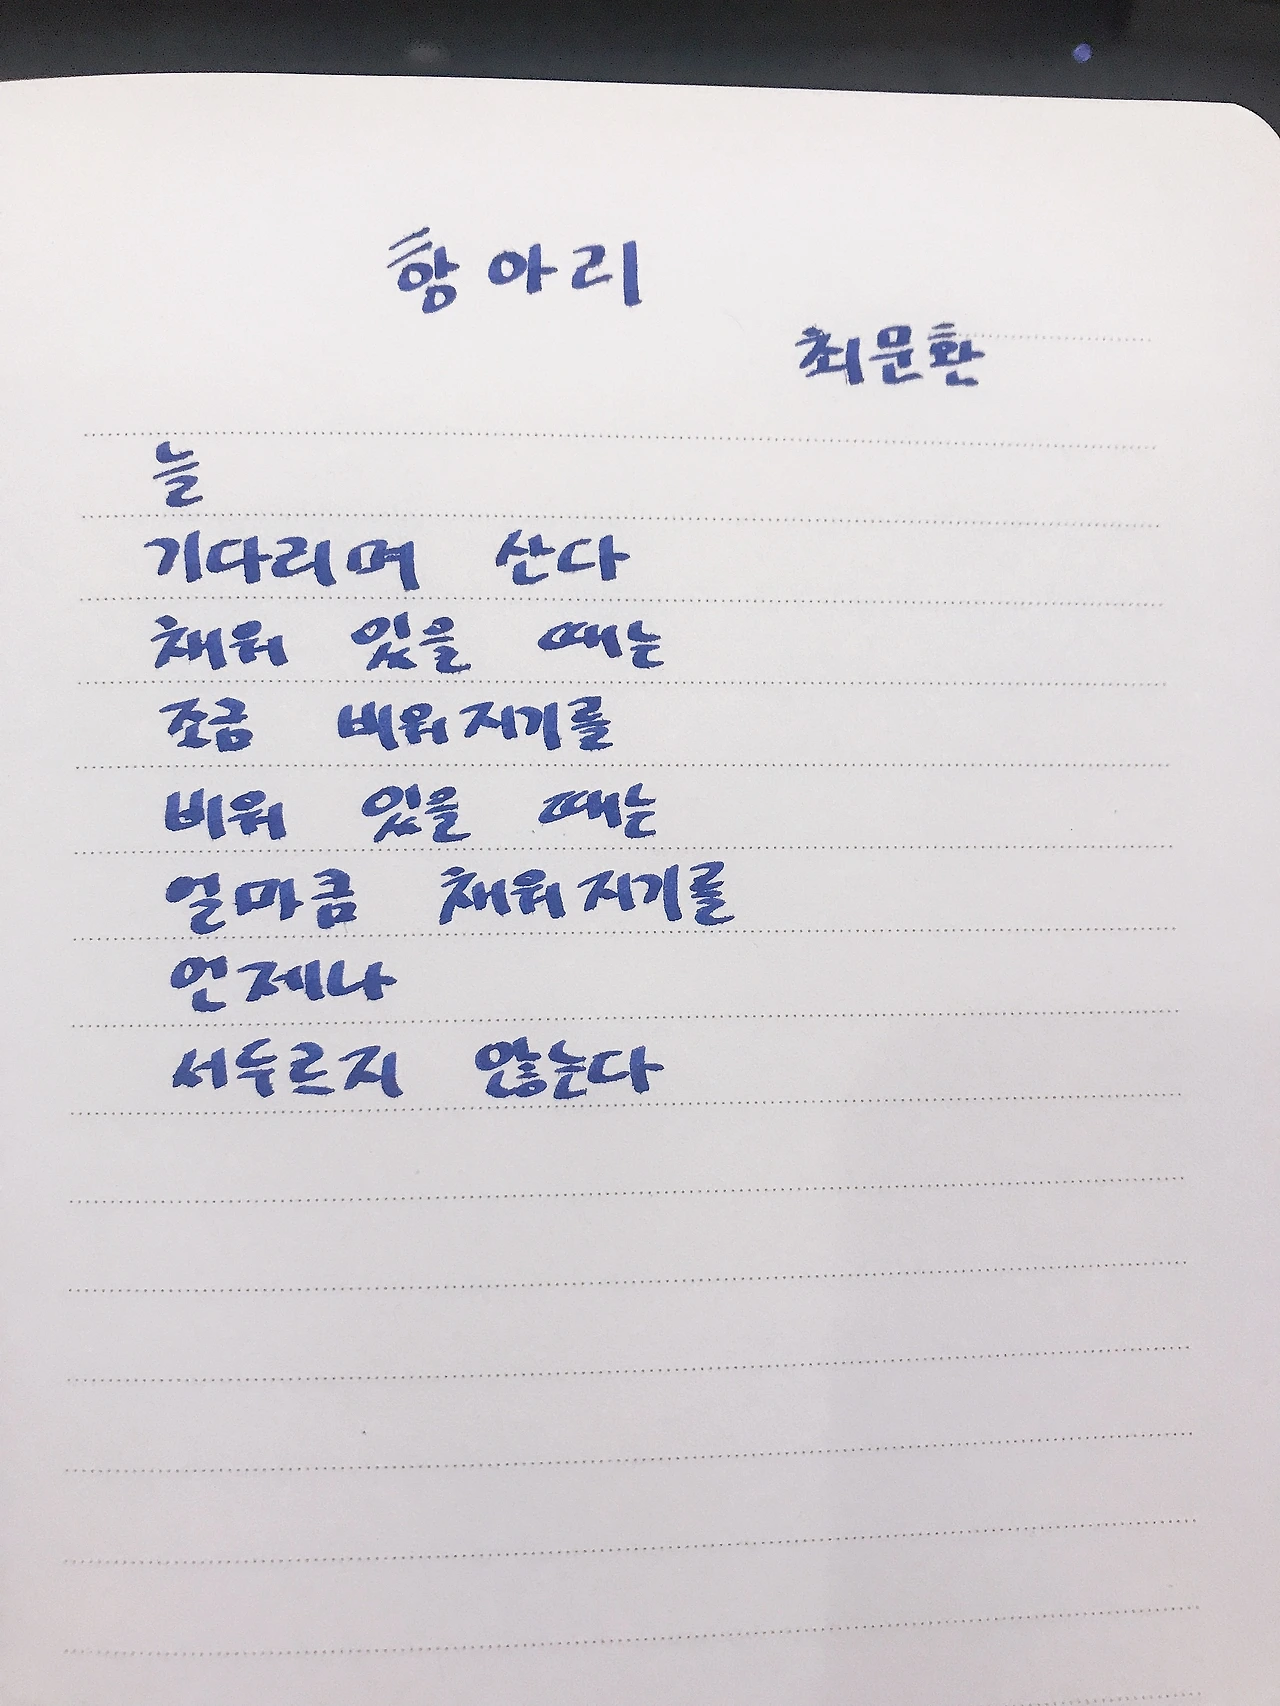 항아리
최문환
늘
기다리며 산다
채워 있을 때는
조금 비워지기를
비워 있을 때는
얼마큼 채워지기를
언제나
서두르지 않는다